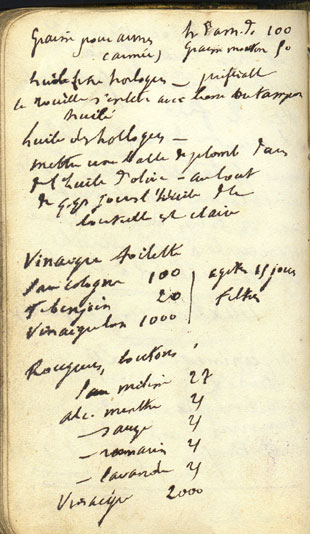 Graisse pour armes h. d'am. d. 100
(armée) Graisse mouton 50
huile fixe horloges –
la rouille s'enlève avec tampon
huilé
huile d'horloges –
mettre une balle de plomb dans
de l'huile d'olive – au bout
de qqs jours l'huile de la
bouteille est claire
Vinaigre toilette
Eau cologne 100
T. benjoin 20 agiter 15 jours
Vinaigre bon 1000 filtrer
Rougeurs, boutons
Eau mélisse 27
alc. menthe 4
– sauge 4
– romarin 4
– lavande 4
Vinaigre 2000